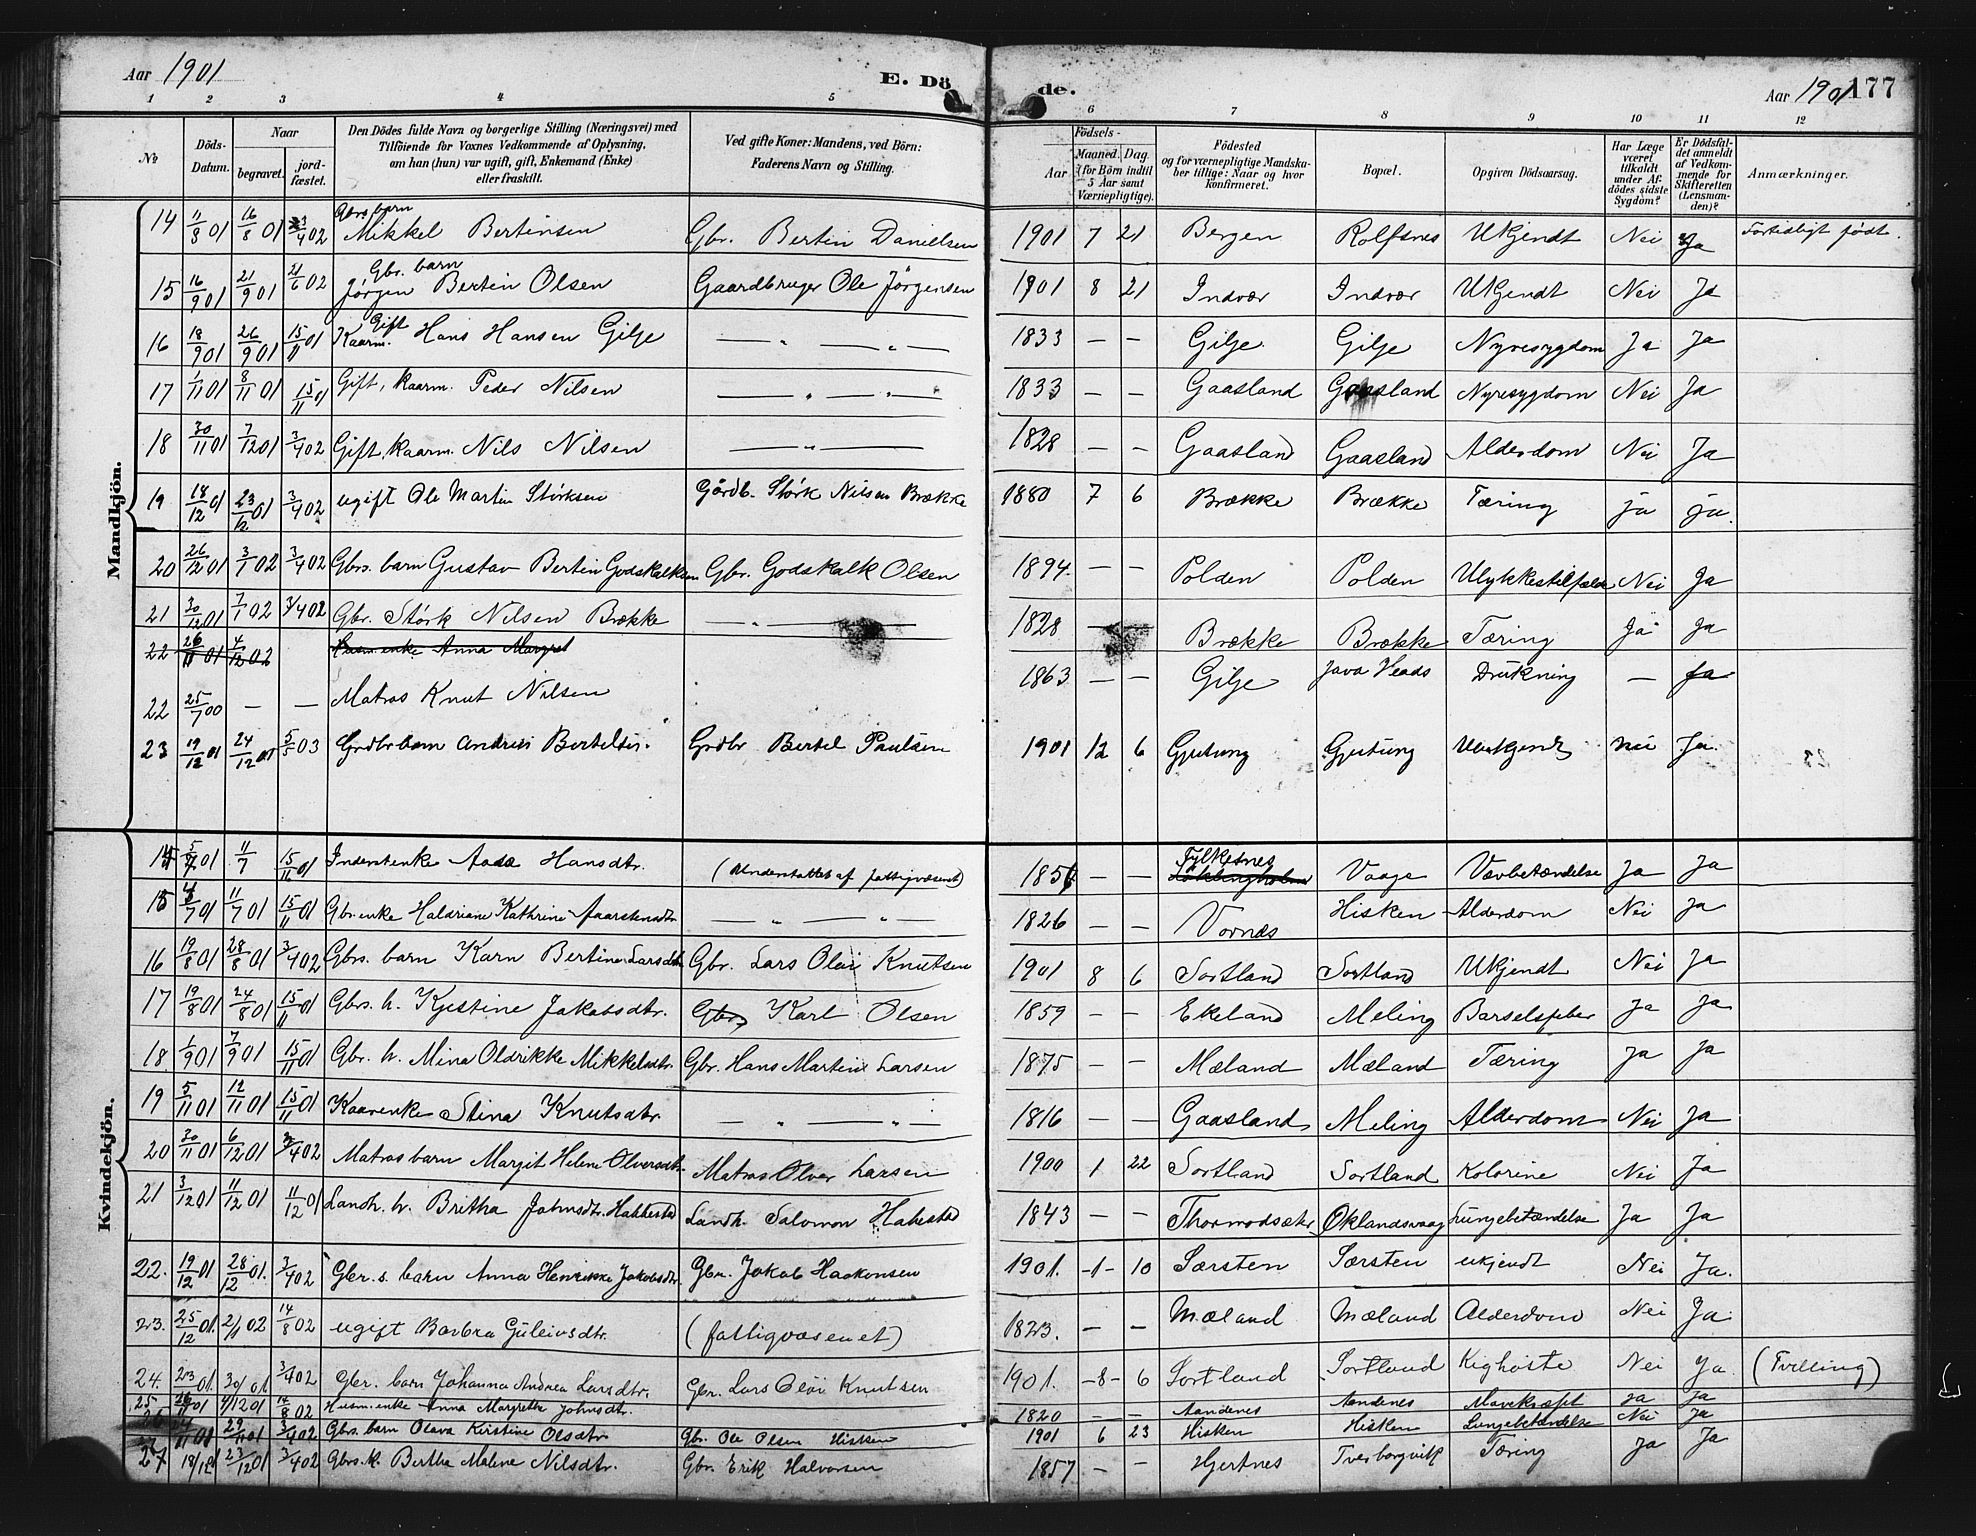 Aar 1901 E. Dö de. Aar 1901 177
1 2 3 4 5 6 7 8 9 10 11 12
No Döds-Datum. Naar begravet. jord-fæstet. Den Dödes fulde Navn og borgerlige Stilling (Næringsvei) med Tilföiende for Voxnes Vedkommende af Oplysning, om han (hun) var ugift, gift, Enkemand (Enke) eller fraskilt. Ved gifte Koner: Mandens, ved Börn: Faderens Navn og Stilling. Födsels- Aar Maaned. Dag. (for Börn indtil 5 Aar samt Værnepligtige). Födested og for værnepligtige Mandska-ber tillige: Naar og hvor konfirmeret. Bopæl. Opgiven Dödsaarsag. Har Læge været tilkaldt under Af-dödes sidste Sygdom? Er Dödsfal-det anmeldt af Vedkom-mende for Skifteretten (Lensman-den)? Anmærkninger.
Mandkjön.
14 11/8 01 16/8 01 3/4 02 Gbrs barn Mikkel Bertinsen Gbr. Bertin Danielsen 1901 7 21 Bergen Rolfsnes Ukjendt Nei Ja Fortidligt født.
15 16/9 01 21/9 01 21/6 02 Gbr. barn Jørgen Bertin Olsen Gaardbruger Ole Jørgensen 1901 8 21 Indvær Indvær Ukjendt Nei Ja
16 18/9 01 26/9 01 15/11 01 Gift Kaarm. Hans Hansen Gilje — " — " — 1833 — — Gilje Gilje Nyresygdom Ja Ja
17 1/11 01 8/11 01 15/11 01 Gift, kaarm. Peder Nilsen — " — " — " 1833 — — Gaasland Gaasland Nyresygdom Nei Ja
18 30/11 01 7/12 01 3/4 02 Gift, kaarm. Nils Nilsen — " — 1828 — — Gaasland Gaasland Alderdom Nei Ja
19 18/12 01 23/12 01 3/4 02 ugift Ole Martin Størksen Gårdb. Størk Nilsen Brække 1880 7 6 Brække Brække Tæring ja ja.
20 26/12 01 3/1 02 3/4 02 Gbrs. barn Gustav Bertin Godskalksen Gbr. Godskalk Olsen 1894 — — Polden Polden Ulykkestilfælde Nei Ja
21 30/12 01 7/1 02 3/4 02 Gbr. Størk Nilsen Brække — " — 1828 — — Brække Brække Tæring Ja Ja
22 26/11 01 4/12 02 Husm. enke Anna Margret
22 25/7 00 — — Matros Knut Nilsen 1863 — — Gilje Java Heads Drukning — Ja
23 19/12 01 24/12 01 5/5 03 Grdbr barn Andreas Bertelsen. Grdbr. Bertel Paulsen 1901 12 6 Gjutung Gjutung Ukjendt nei Ja.
Kvindekjön.
14 5/7 01 11/7 15/11 01 Inderstenke Aasa Hansdtr. (Understøttet af fattigvæsent) 1856 — — Fylkesnes Vaage Vævbetændelse Ja Ja
15 4/7 01 11/7 01 15/11 01 Gbr enke Haldriane Kathrine Aaarstensdtr — " — " — 1826 — — Vornæs Hisken Alderdom Nei Ja
16 19/8 01 28/8 01 3/4 02 Gbrs. barn Karn Bertine Larsdtr Gbr. Lars Olai Knutsen 1901 8 6 Sortland Sortland Ukjendt Nei Ja
17 19/8 01 24/8 01 15/11 01 Gbrs. h. Kjestine Jakobsdtr. Gbr. Karl Olsen 1859 — — Ekeland Meling Barselsfeber Ja Ja
18 1/9 01 7/9 01 15/11 01 Gbr. h. Mina Oldrikke Mikkelsdtr. Gbr. Hans Martin Larsen 1875 — — Mæland Mæland Tæring Ja Ja
19 5/11 01 12/11 01 15/11 01 Kaarenke Stina Knutsdtr — " — " — 1816 — — Gaasland Meling Alderdom Nei Ja
20 30/11 01 6/12 01 3/4 02 Matros barn Margit Helene Olversdtr. Matros Olver Larsen 1900 1 22 Sortland Sortland Kolorine Nei Ja
21 3/12 01 11/12 01 11/12 01 Landh. h. Britha Johnsdtr. Hakkestad Landh. Salomon Hakestad 1843 — — Thormodsæter Øklandsvaag Lungebetændelse Ja Ja
22. 19/12 01 28/12 01. 3/4 02 Gbr. s. barn Anna Henrikke Jakobsdtr. Gbr. Jakob Haakonsen 1901. -1- 10 Særsten Særsten ukjendt Nei Ja.
23. 25/12 01. 2/1 02 14/8 02 ugift Barbra Guleivsdtr. (fattigvæsenet) 1823. — — Mæland Mæland Alderdom Nei Ja.
24. 23/ 01. 30/ 01 3/4 02 Gbr. barn Johanna Andrea Larsdtr. Gbr. Lars Olai Knutsen 1901. -8- 6 Sortland Sortland Kighoste Nei Ja (Tvilling)
25 26/11 01 4/12 01 14/8 02 Husm. enke Anna Margrethe Johnsdtr. 1820 — — Aandenes Aandenes Mavekræft Ja Ja
26 /11 01 29/11 01 3/4 02 Gbrs. barn Olava Kirstine Olsdtr Gbr. Ole Olsen Hisken 1901 6 23 Hisken Hisken Lungebetændelse Nei Ja
27 18/12 23/12 01 3/4 02 Gbrs. k. Bertha Malene Nilsdtr. Gbr. Erik Halvorsen 1857 — — Hjertnes Tverborgvik Tæring Ja Ja